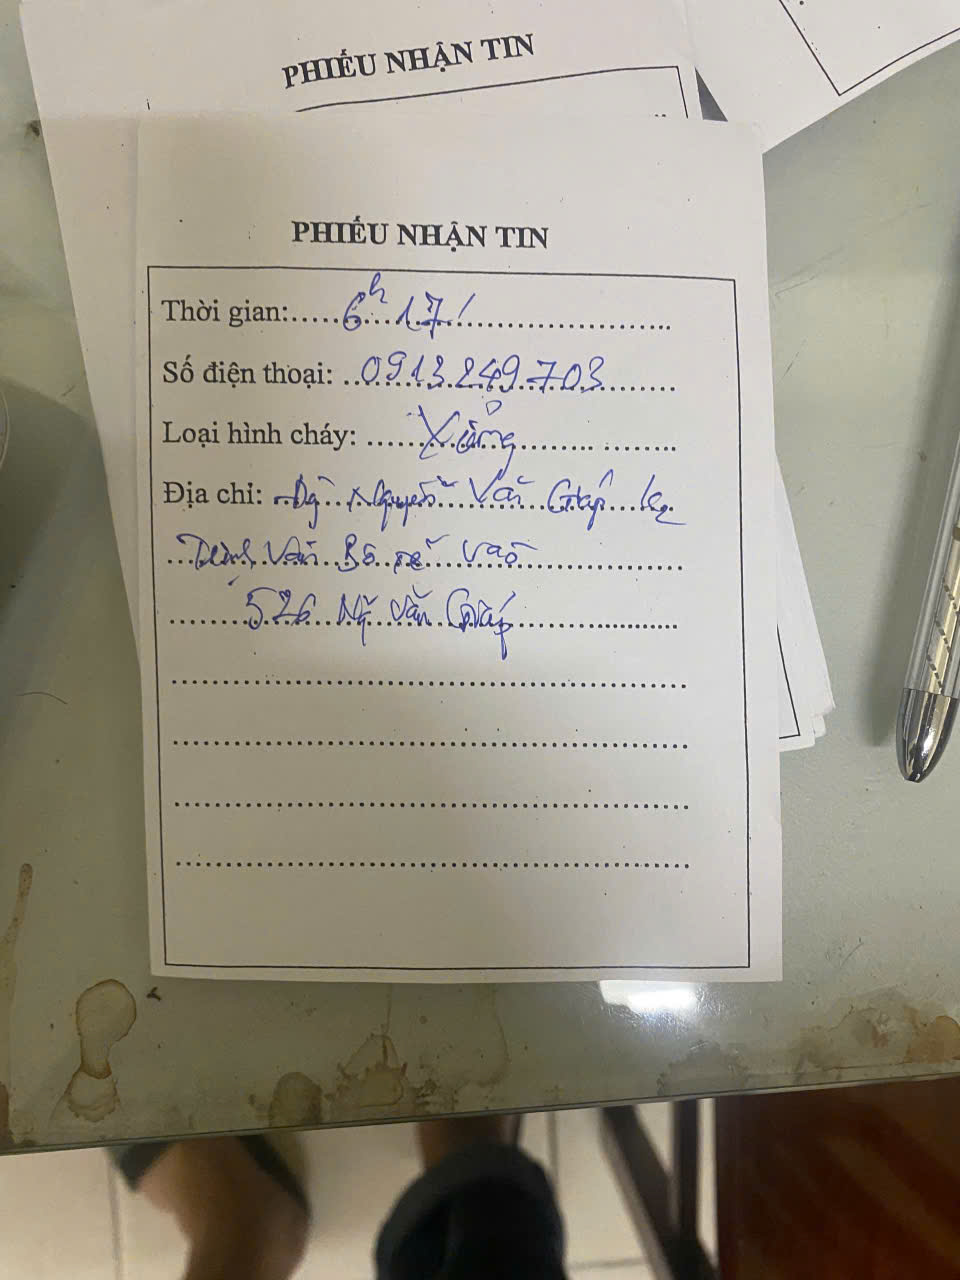 PHIẾU NHẬN TIN
PHIẾU NHẬN TIN
Thời gian:.....6h 17'
Số điện thoại: ..0913.249.703
Loại hình cháy: ......Xưởng
Địa chỉ: Nguyễn Văn Giáp
Văn Bô rẽ vào
526 Ng Văn Giáp